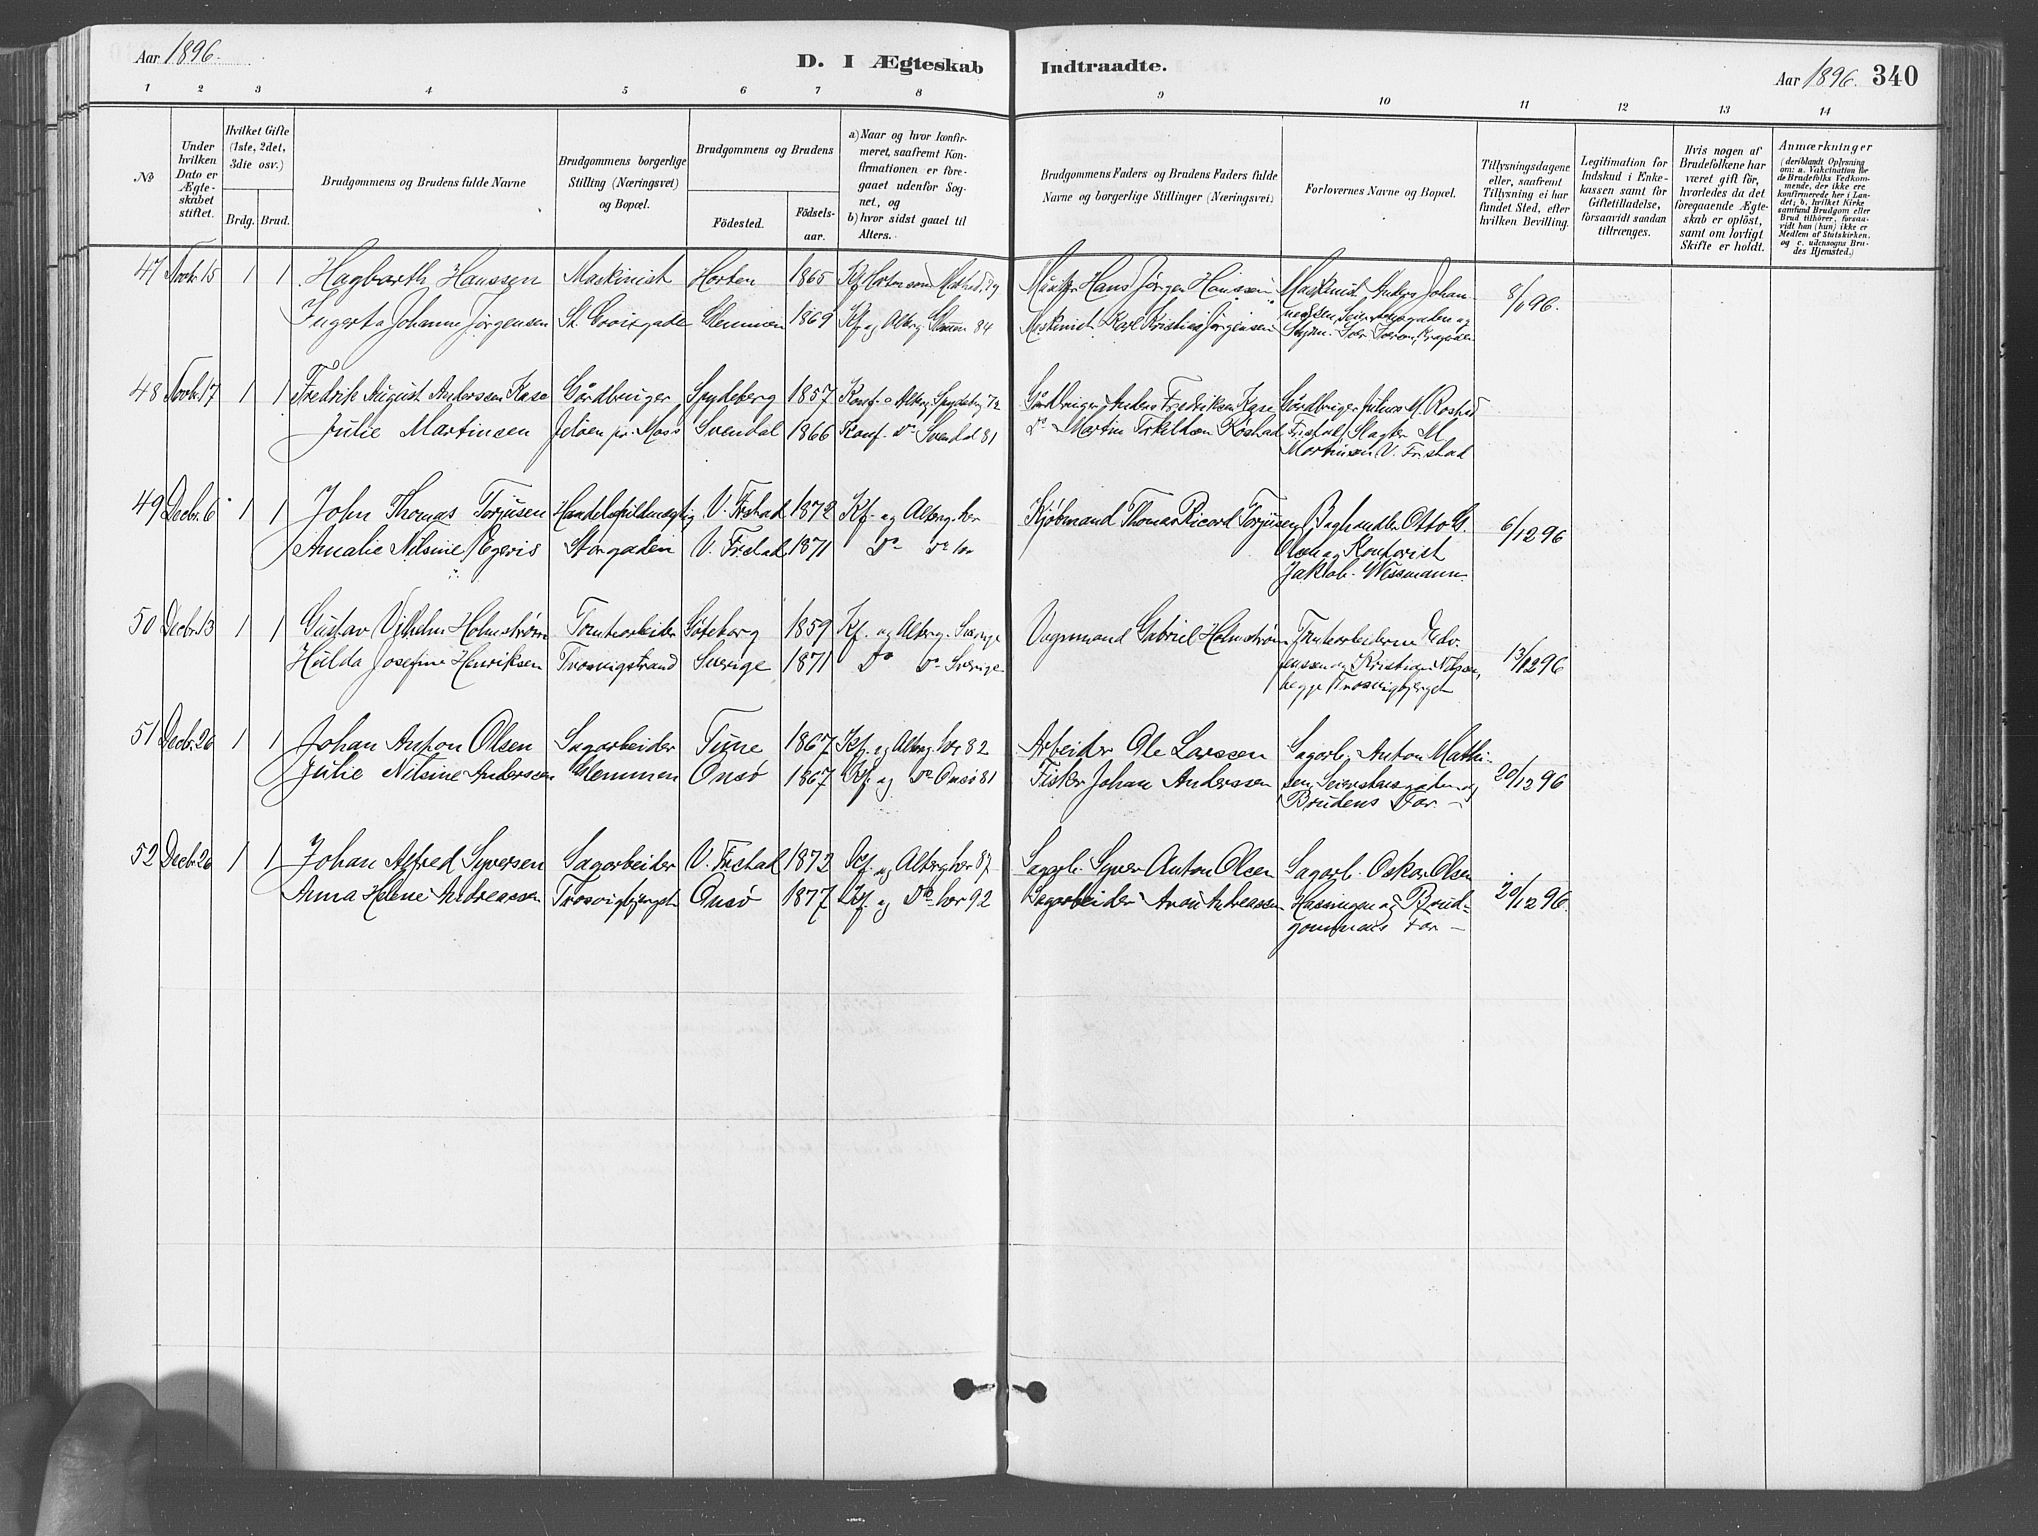 Aar 1896.
D. I Ægteskab Indtraadte.
Aar 1896. 340
1 2 3 4 5 6 7 8 9 10 11 12 13 14
No
Under hvilken Dato er Ægteskabet stiftet.
Hvilket Gifte (1ste, 2det, 3die osv.)
Brdg. Brud.
Brudgommens og Brudens fulde Navne
Brudgommens borgerlige Stilling (Næringsvei) og Bopæl.
Brudgommens og Brudens
Födested.
Födselsaar.
a) Naar og hvor konfirmeret, saafremt Konfirmationen er foregaaet udenfor Sognet, og
b) hvor sidst gaaet til Alters.
Brudgommens Faders og Brudens Faders fulde Navne og borgerlige Stillinger (Næringsvei)
Forlovernes Navne og Bopæl.
Tillysningsdagene eller, saafremt Tillysning ei har fundet Sted, efter hvilken Bevilling.
Legitimation for Indskud i Enkekassen samt for Giftetilladelse, forsaavidt saadan tiltrænges.
Hvis nogen af Brudefolkene har været gift för, hvorledes da det foregaaende Ægteskab er oplöst, samt om lovligt Skifte er holdt.
Anmærkninger
(deriblandt Oplysning om: a. Vakcination for de Brudefolks Vedkommende, der ikke ere konfirmerede her i Landet; b. hvilket Kirkesamfund Brudgom eller Brud tilhörer, forsaavidt han (hun) ikke er Medlem af Statskirken, og c. udensogns Brudes Hjemsted.)
47 Novbr. 15 1 1 Hagbarth Hanssen Maskinist Horten 1865
Hans Jørgen Hanssen Maskinist Anders Johan-
8/11 96.
Ingerta Johanne Jørgensen St. Croixgade Glemmen 1869 Kf. og Alterg. Glemmen 84
Maskinist Karl Kristian Jørgensen nessen,
48 Novbr. 17 1 1 Fredrik August Anderssen Kase Gårdbruger Spydeberg 1857 Konf. o Alterg. Spydeberg 72
Gårdbruger Anders Fredriksen Kase Gårdbruger Julius M. Rostad
Julie Martinsen Jeløen pr. Moss Svendal 1866 Konf. Do 81
Do Martin Rostad
Martinsen V. Frstad
49 Decbr. 6 1 1 John Thomas Torjusen V. Frstad 1872 Kf. og Alterg. her
Kjøbmand Thomas Ricard Torjusen Boghandler Otto G.
6/12 96
Amalie Nilsine Egeris Storgaden V. Frstad 1871 Do Do her
Olsen og Kontorist
Jakob Wissmann
50 Decbr. 13 1 1 Gustav Vilhelm Holmstrøm Tomtearbeider Göteborg 1859 Kf. og Alterg. Sverige
Vognmand Gabriel Holmstrøm Tomtearbeiderne Edv.
13/12 96
Hulda Josefine Henriksen Trosvigstrand Sverige 1871 Do Do Sverige
Jenssen og Kristian Nilsen,
begge Trosvigbjerget
51 Decbr. 26 1 1 Johan Anton Olsen Sagarbeider Tune 1867 Kf. og Alterg. her 82
Arbeider Ole Larssen Sagarb. Anton Mathi-
20/12 96
Julie Nilsine Anderssen Glemmen Onsø 1867 Kf. og Do Onsø 81
Fisker Johan Anderssen sen, Seierstensgaden og
Brudens Far. —
52 Decbr. 26 1 1 Johan Alfred Syversen Sagarbeider V. Frstad 1872 Kf. og Alterg. her 87
Sagarb. Syver Anton Olsen Sagarb. Oskar Olsen
20/12 96.
Anna Helene Andreassen Trosvigbjerget Onsø 1877 Kf. og Do her 92
Sagarbeider Andreassen Hassingen og Brud-
gommens Far —